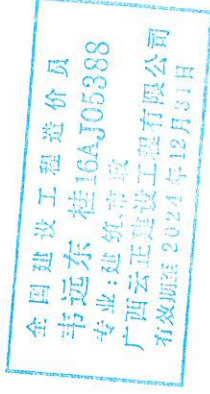 全国建设工程造价员
韦远东 桂16AJ05388
专业:建筑.市政
广西云正建设工程有限公司
有效期至2024年12月31日